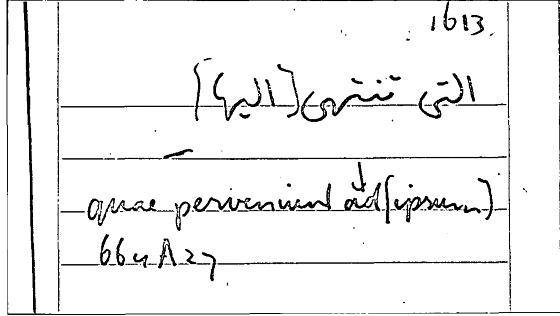 1613.
التى تنتهى [اليها]
quae perveniunt ad (ipsum)
664 A 27